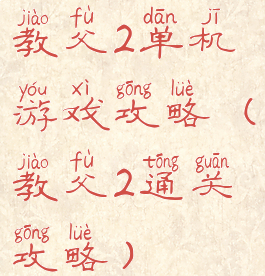 jiào fù dān jī
教父2单机
yóu xì gōng lüè
游戏攻略（
jiào fù tōng guān
教父2通关
gōng lüè
攻略）